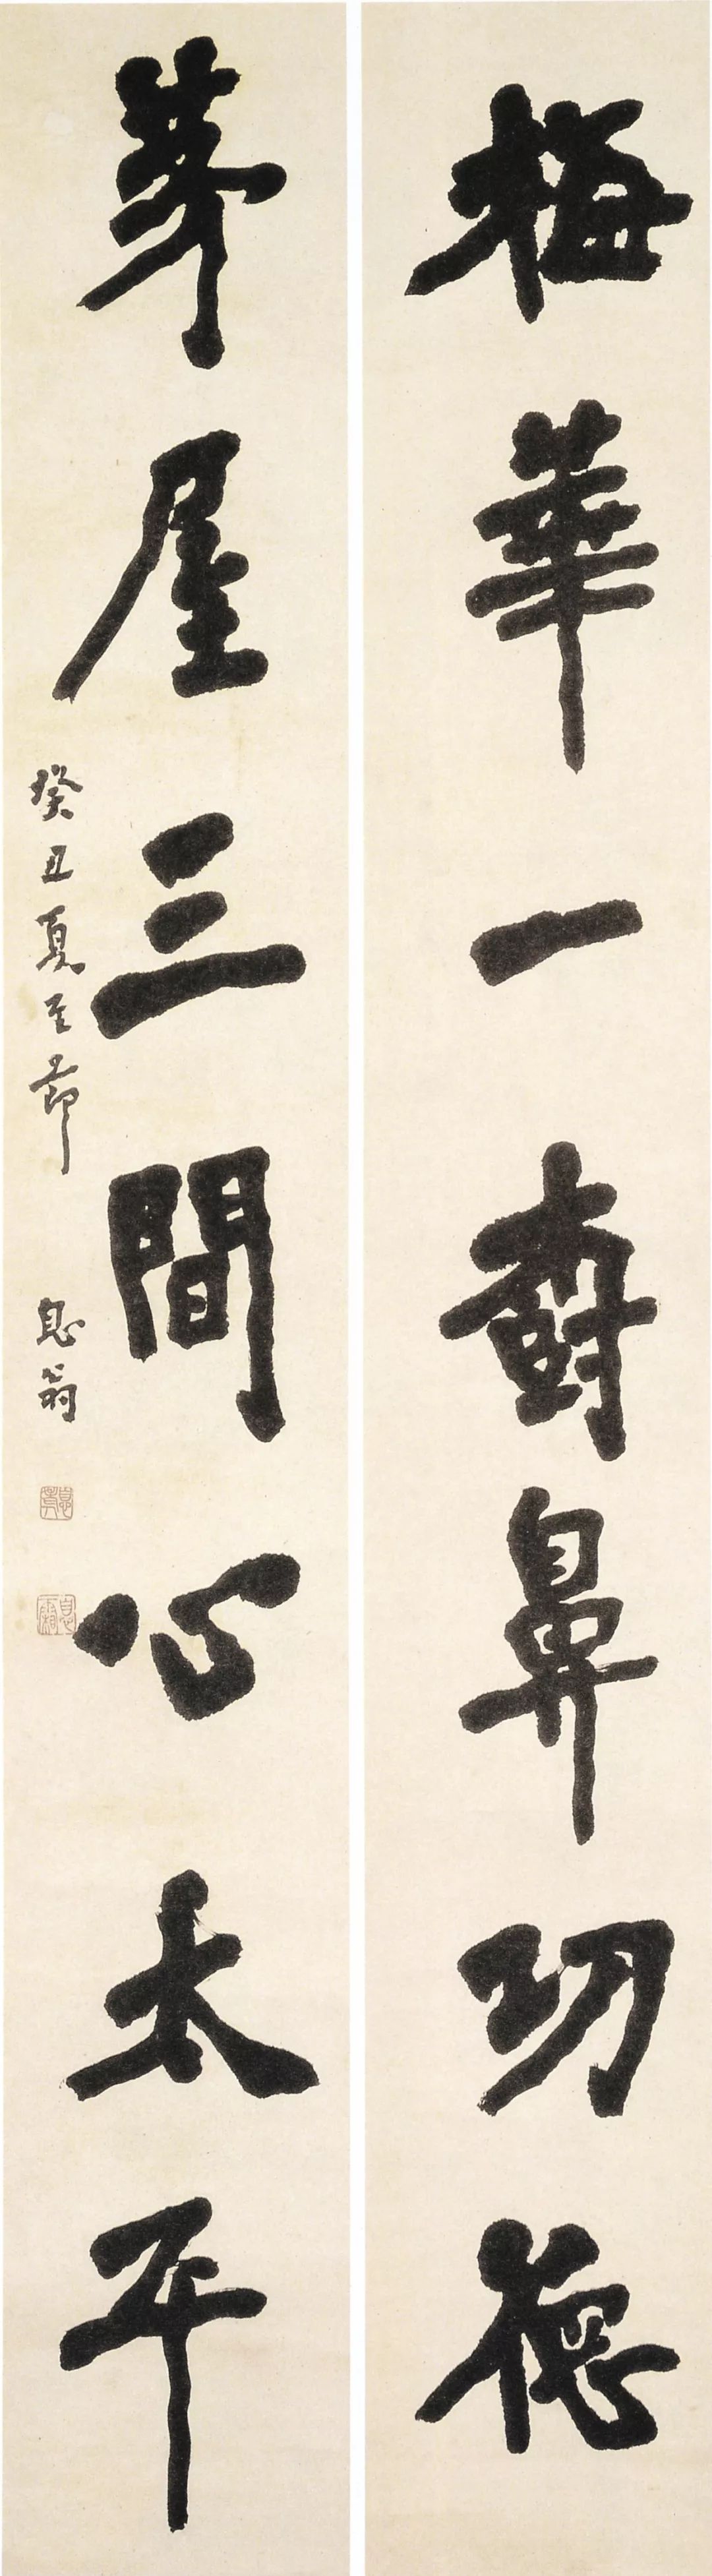 梅華一樹鼻功德
茅屋三間心太平
癸丑夏至節
息翁
息霜